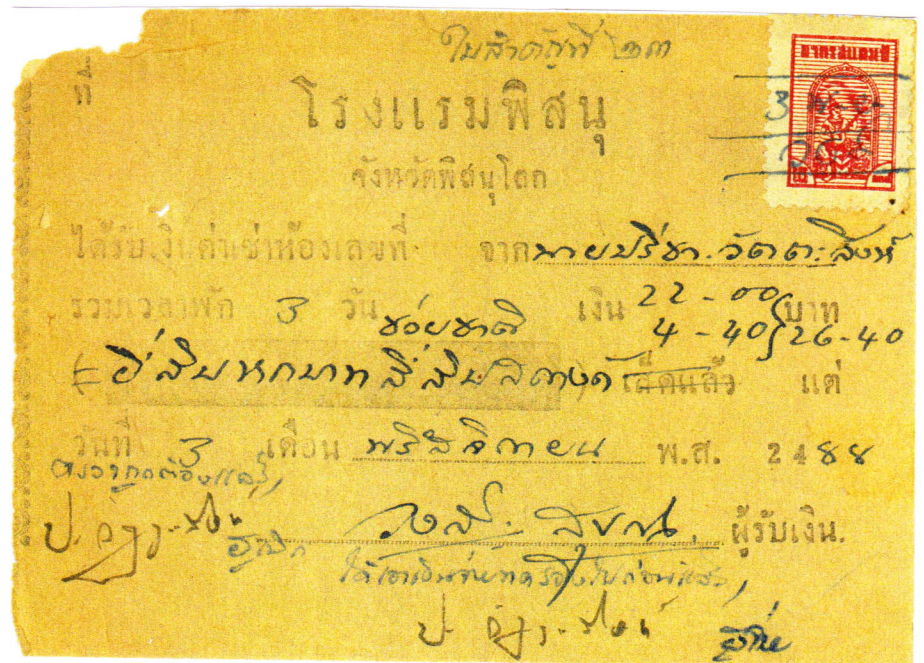 ใบสำคัญที่ ๒๓
ที่
อากรสแตมป์
โรงแรมพิสนุ
3 พ.ย.
จังหวัดพิสนุโลก
ได้รับเงินค่าเช่าห้องเลขที่ จาก นายปรีชา วัตตะสิงห์
รวมเวลาพัก 3 วัน เงิน 22-00 บาท
ช่วยชาติ 4-40 26-40
(ยี่สิบหกบาทสี่สิบสตางค์) เส็ดแล้ว แต่
วันที่ 3 เดือน พรึสจิกายน พ.ส. 2488
ตรวจถูกต้องแล้ว
ผู้รับเงิน.
ได้
ไปก่อนแล้ว